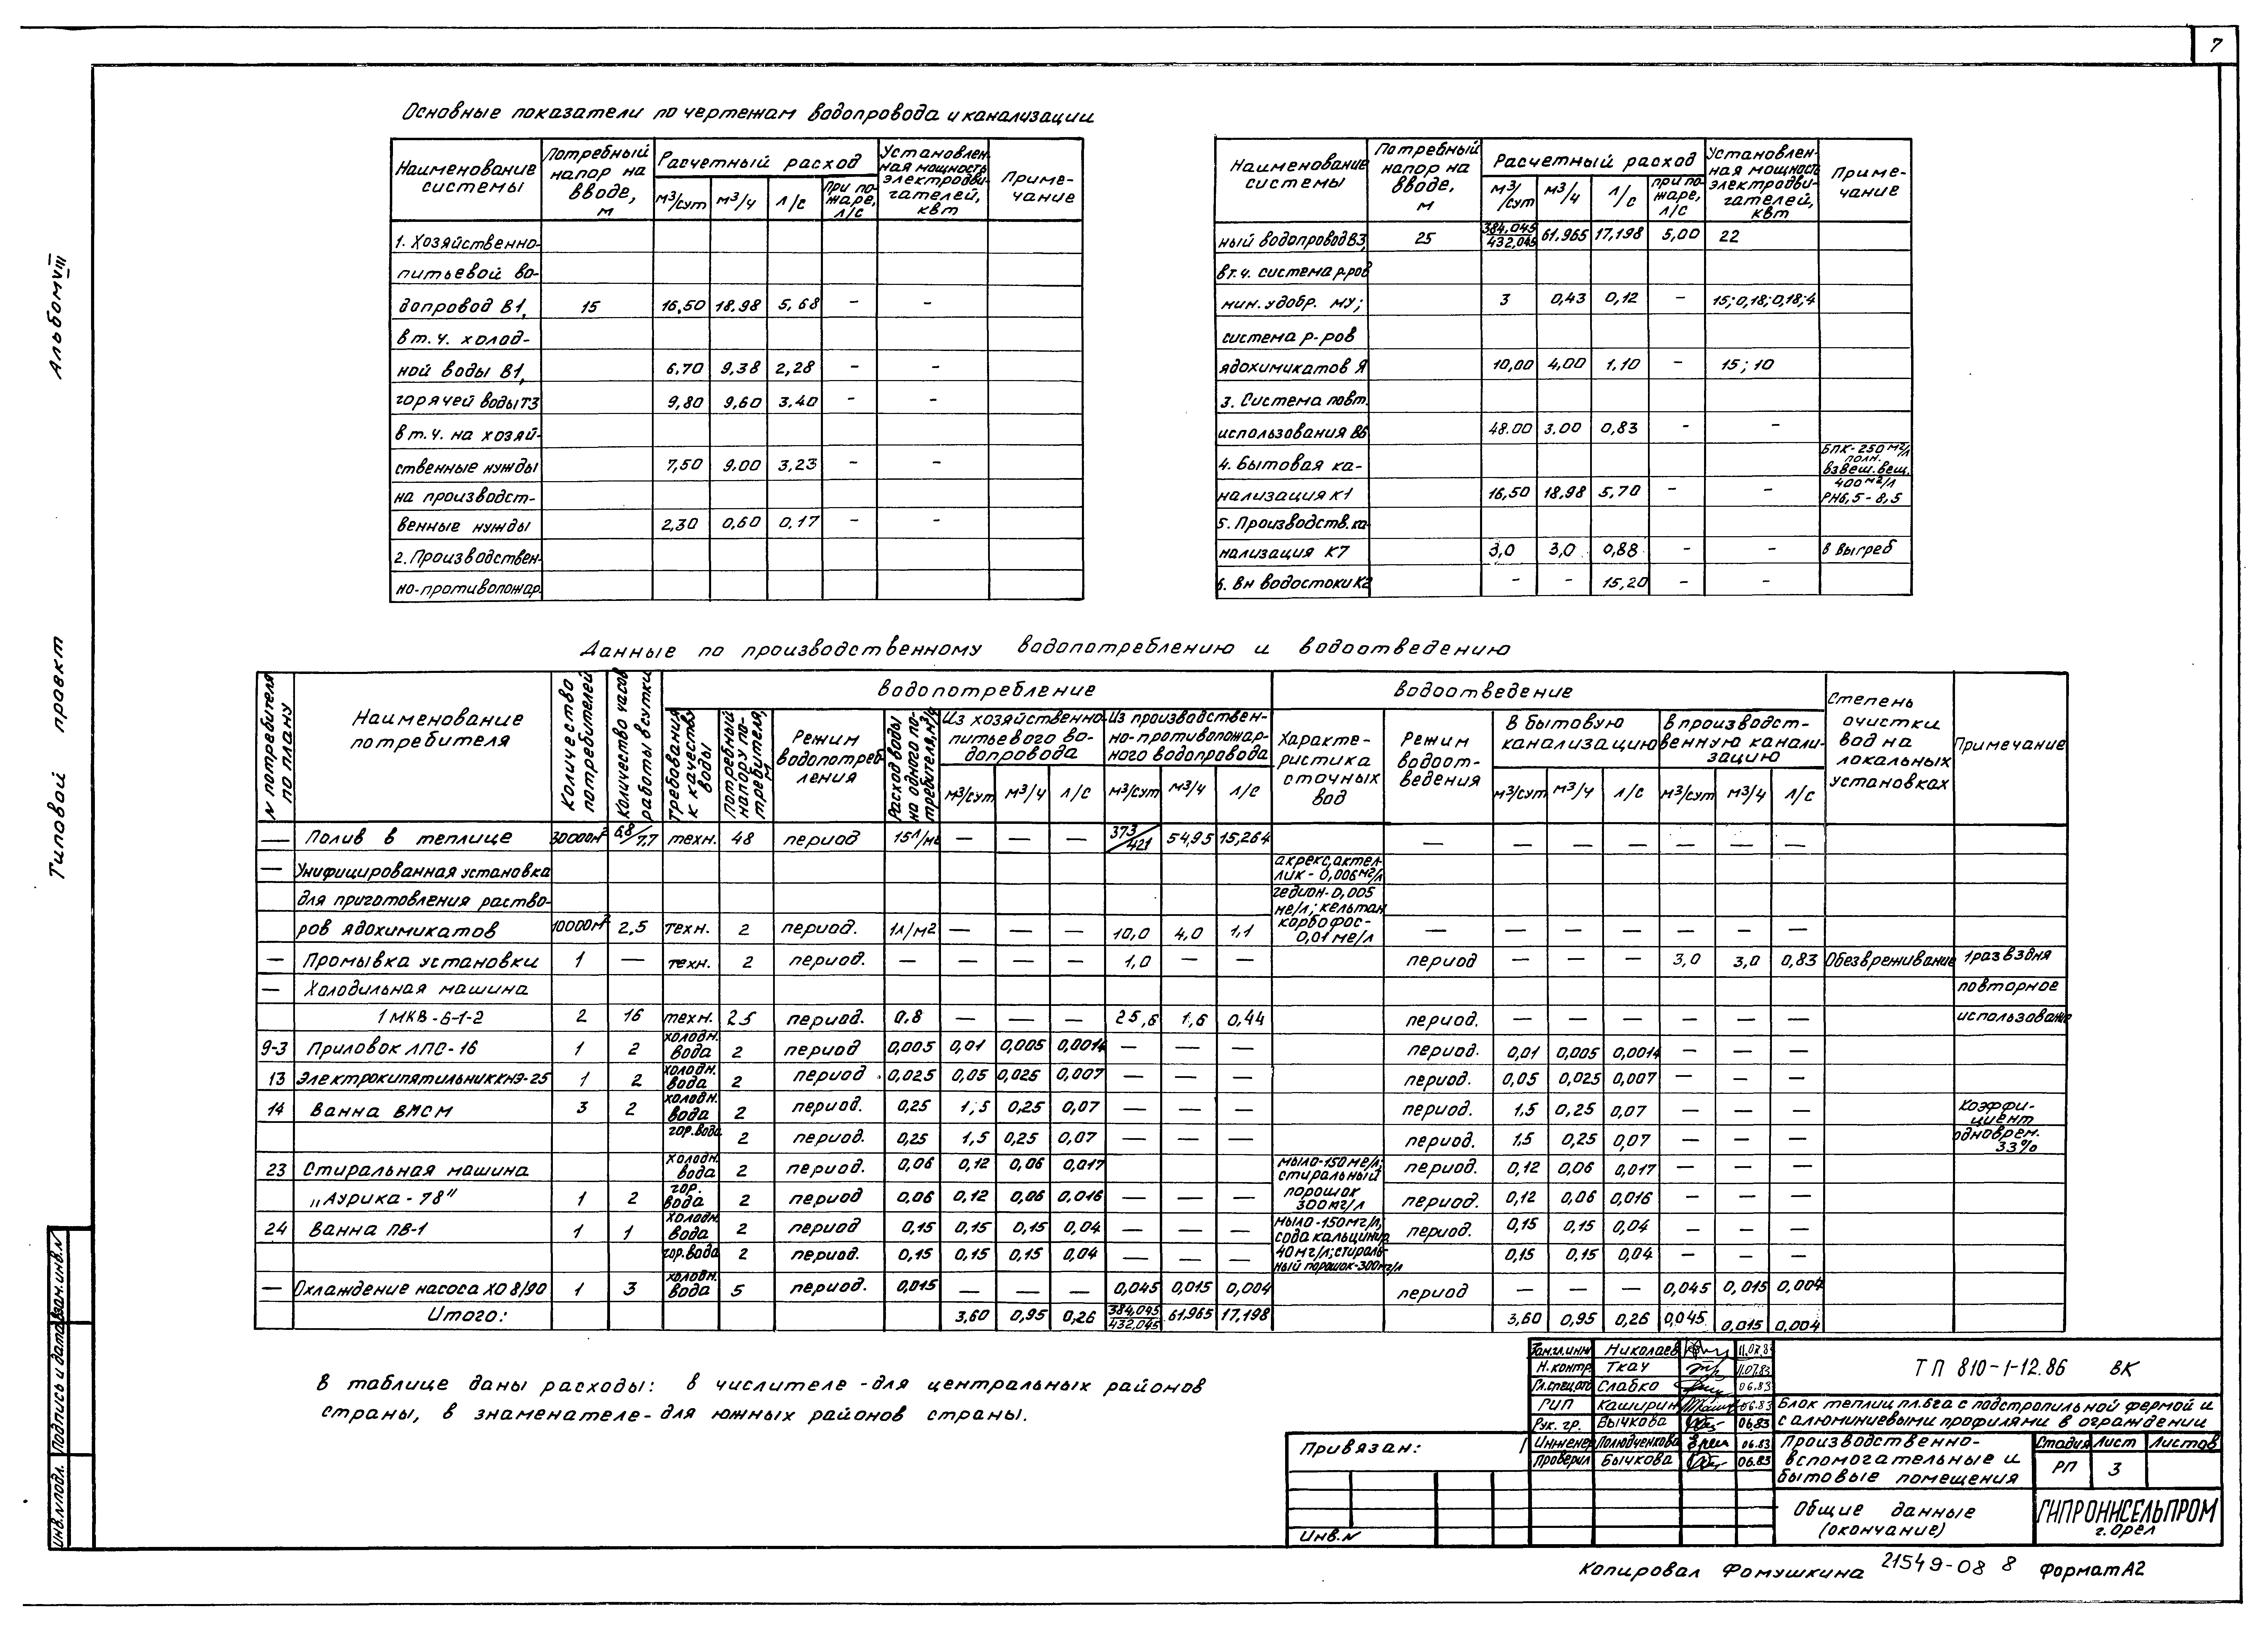 7
Альбом VIII
Типовой проект
Основные показатели по чертежам водопровода и канализации
Наименование системы | Потребный напор на вводе, м | Расчетный расход | Установлен-ная мощность электродви-гателей, квт | Приме-чание
м³/сут | м³/ч | л/с | при по-жаре, л/с
1. Хозяйственно-
питьевой во-
допровод В1, 15 16,50 18.98 5,68 – –
в т.ч. холод-
ной воды В1, 6,70 9,38 2,28 – –
горячей воды Т3 9,80 9,60 3.40 – –
в т.ч. на хозяй-
ственные нужды 7,50 9.00 3,23 – –
на производст-
венные нужды 2,30 0,60 0,17 – –
2. Производствен-
но-противопожар.
Наименование системы | Потребный напор на вводе, м | Расчетный расход | Установлен-ная мощность электродви-гателей, квт | Приме-чание
м³/сут | м³/ч | л/с | при по-жаре, л/с
ный водопровод В3, 25 384.045/432,045 61,965 17,198 5,00 22
в т.ч. система р-ров
мин. удобр. МУ; 3 0,43 0,12 – 15;0,18;0,18;4
система р-ров
ядохимикатов Я 10,00 4,00 1,10 – 15; 10
3. Система повт.
использования В6 48.00 3.00 0,83 – –
4. Бытовая ка- БПК-250мг/л полн. взвеш. вещ.
нализация К1 16,50 18,98 5,70 – – 400мг/л РН6,5-8,5
5. Производств. ка-
нализация К7 3,0 3,0 0,88 – – в выгреб
6. Вн водостоки К2 – – 15,20 – –
Данные по производственному водопотреблению и водоотведению
N потребителя по плану | Наименование потребителя | Количество потребителей | Количество часов работы в сутки | водопотребление | водоотведение | Степень очистки вод на локальных установках | Примечание
Требования к качеству воды | Потребный напор у по-требителя, м | Режим водопотреб-ления | Расход воды на одного по-требителя, м³/ч | Из хозяйственно-питьевого во-допровода | Из производствен-но-противопожар-ного водопровода | Характе-ристика сточных вод | Режим водоот-ведения | В бытовую канализацию | в производст-венную канали-зацию
м³/сут | м³/ч | л/с | м³/сут | м³/ч | л/с | м³/сут | м³/ч | л/с | м³/сут | м³/ч | л/с
— Полив в теплице 30000м² 6,8/7,7 техн. 48 период 15л/м² — — — 373/421 54,95 15,264 — — — — — — —
— Унифицированная установка акрекс, актел-лик - 0,006мг/л
для приготовления раство- гедион-0,005 мг/л; кельтан
ров ядохимикатов 10000м² 2,5 техн. 2 период. 1л/м² — — — 10,0 4,0 1,1 карбофос-0,01мг/л — — — — — — —
— Промывка установки 1 — техн. 2 период. — — — — 1,0 — — период — — — 3,0 3,0 0,83 Обезвреживание 1раз в 3дня
— Холодильная машина повторное
1МКВ-6-1-2 2 16 техн. 25 период. 0,8 — — — 25,6 1,6 0,44 период. — — — — — — использование
9-3 Прилавок ЛПС-16 1 2 холодн. вода 2 период 0,005 0,01 0,005 0,0014 — — — период. 0,01 0,005 0,0014 — — —
13 Электрокипятильник КНЭ-25 1 2 холодн. вода 2 период 0,025 0,05 0,025 0,007 — — — период. 0,05 0,025 0,007 — — —
14 Ванна ВМСМ 3 2 холодн. вода 2 период. 0,25 1,5 0,25 0,07 — — — период. 1,5 0,25 0,07 — — — Коэффи-циент
гор. вода 2 период. 0,25 1,5 0,25 0,07 — — — период. 1,5 0,25 0,07 — — — одноврем. 33%
23 Стиральная машина холодн. вода 2 период. 0,06 0,12 0,06 0,017 — — — мыло-150мг/л; стиральный период. 0,12 0,06 0,017 — — —
„Аурика-78" 1 2 гор. вода 2 период 0,06 0,12 0,06 0,016 — — — порошок 300мг/л период. 0,12 0,06 0,016 — — —
24 Ванна ПВ-1 1 1 холодн. вода 2 период 0,15 0,15 0,15 0,04 — — — мыло-150мг/л, сода кальцинир. период. 0,15 0,15 0,04 — — —
гор. вода 2 период. 0,15 0,15 0,15 0,04 — — — 40мг/л; стираль-ный порошок-300мг/л 0,15 0,15 0,04 — — —
— Охлаждение насоса ХО 8/90 1 3 холодн. вода 5 период. 0,015 — — — 0,045 0,015 0,004 период — — — 0,045 0,015 0,004
Итого: 3,60 0,95 0,26 384,045/432,045 61.965 17,198 3,60 0,95 0,26 0,045 0,015 0,004
В таблице даны расходы: в числителе - для центральных районов
страны, в знаменателе - для южных районов страны.
Взам. инв. N
Подпись и дата
Инв. N подл.
Привязан:
Инв. N
Зам.гл.инж Николаев 11.07.83
Н.контр. Ткач 11.07.83
Гл.спец.ото Слабко 06.83
ГИП Каширин 06.83
Рук. гр. Бычкова 06.83
Инженер Полюдченкова 06.83
Проверил Бычкова 06.83
ТП 810-1-12.86 ВК
Блок теплиц пл. 6га с подстропильной фермой и
с алюминиевыми профилями в ограждении
Производственно-
вспомогательные и
бытовые помещения
Стадия Лист Листов
РП 3
Общие данные
(окончание)
ГИПРОНИСЕЛЬПРОМ
г. Орел
Копировал Фомушкина 21549-08 8 Формат А2